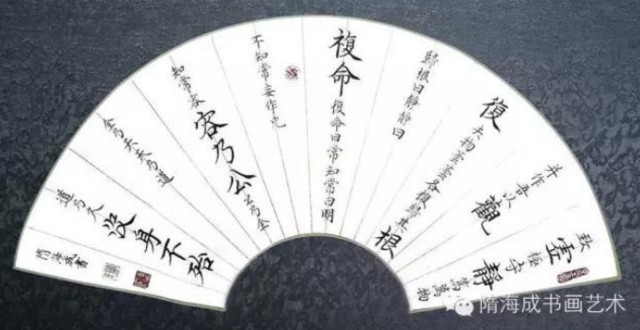 致虛極守靜篤萬物
并作吾以觀
復夫物芸芸各復歸其根
歸根曰靜靜曰
復命復命曰常知常曰明
不知常妄作凶
知常容容乃公公乃全
全乃天天乃道
道乃久沒身不殆
隋海成書
隋海成书画艺术